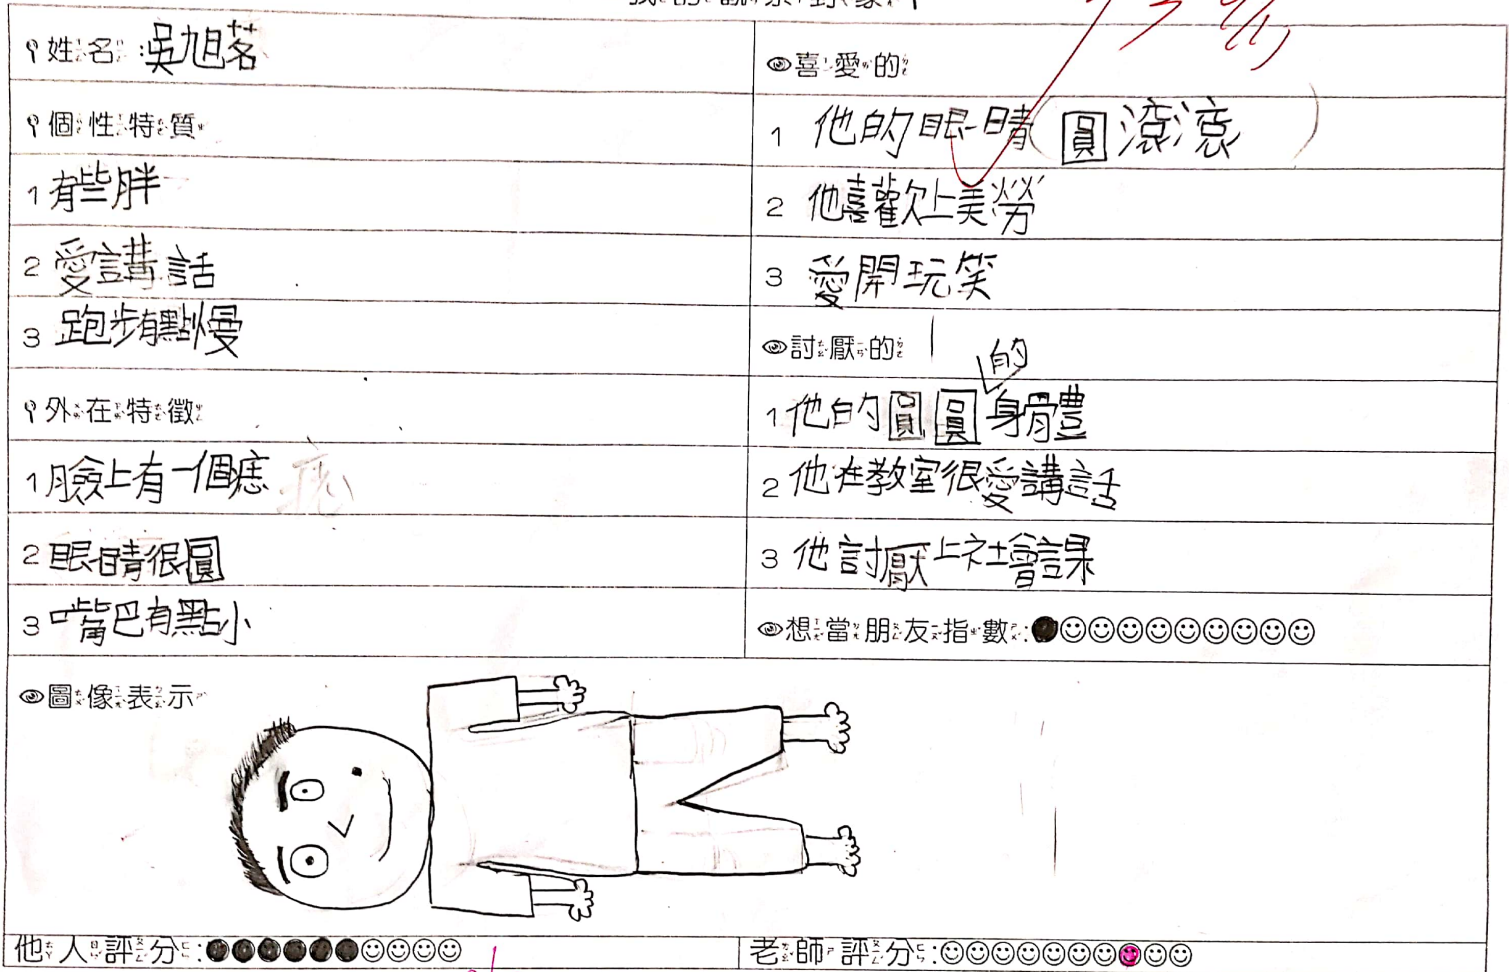 姓名:吳旭茗
個性特質
1 有些胖
2 愛講話
3 跑步有點慢
外在特徵
1 臉上有一個痣
2 眼睛很圓
3 嘴巴有點小
喜愛的
1 他的眼睛(圓滾滾)
2 他喜歡上美勞
3 愛開玩笑
討厭的
1 他的圓圓的身體
2 他在教室很愛講話
3 他討厭上社會課
想當朋友指數:
圖像表示
他人評分:
老師評分: